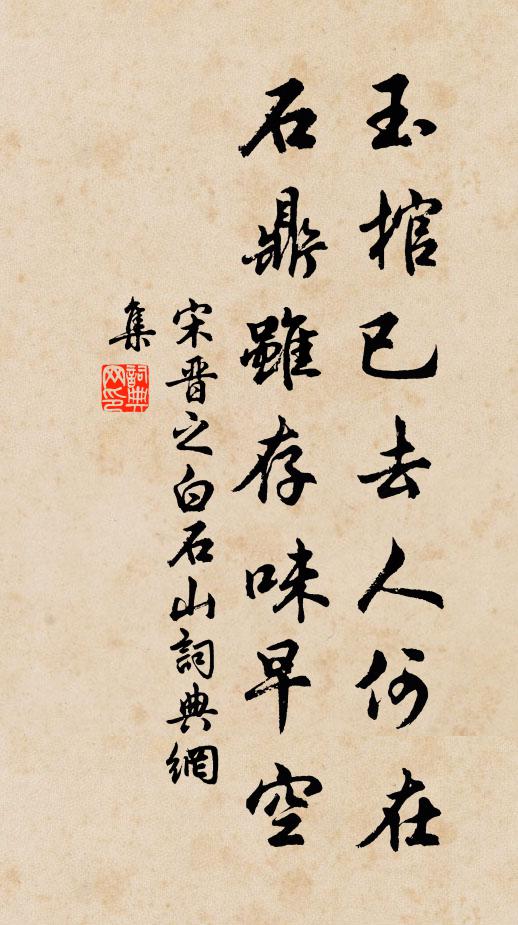 玉棺已去人何在
石鼎雖存味早空
宋晋之白石山詞典網
集
詞典網印